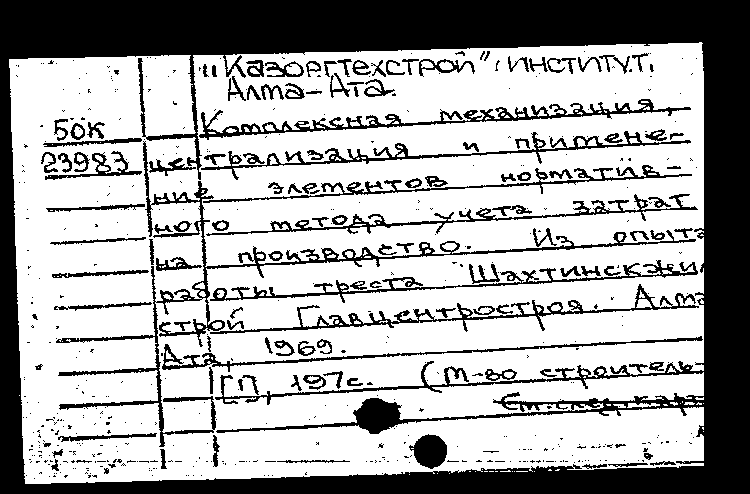 "Казоргтехстрой", институт,
Алма-Ата.
50к Комплексная механизация,
23983 централизация и примене-
ние элементов норматив-
ного метода учета затрат
на производство. Из опыта
работы треста Шахтинскжил
строй Главцентростроя. Алма
Ата, 1969.
[П], 197с. (М-во строитель-
См. след. карт